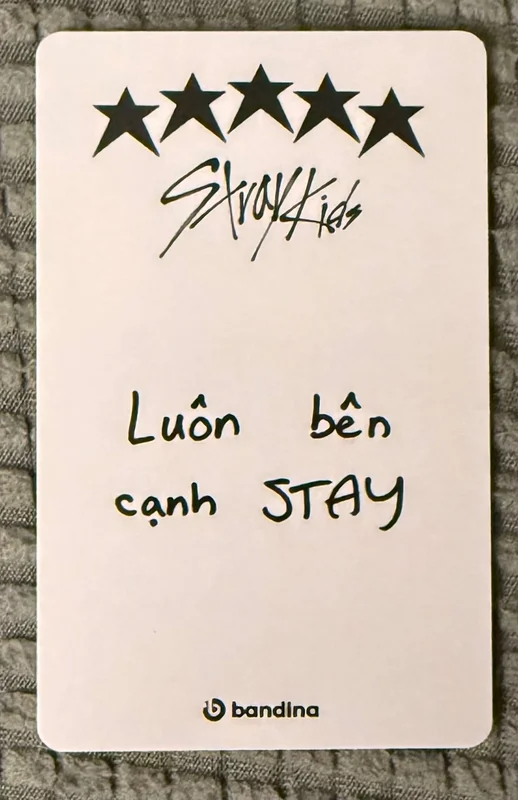 Stray Kids
Luôn bên
cạnh STAY
bandina